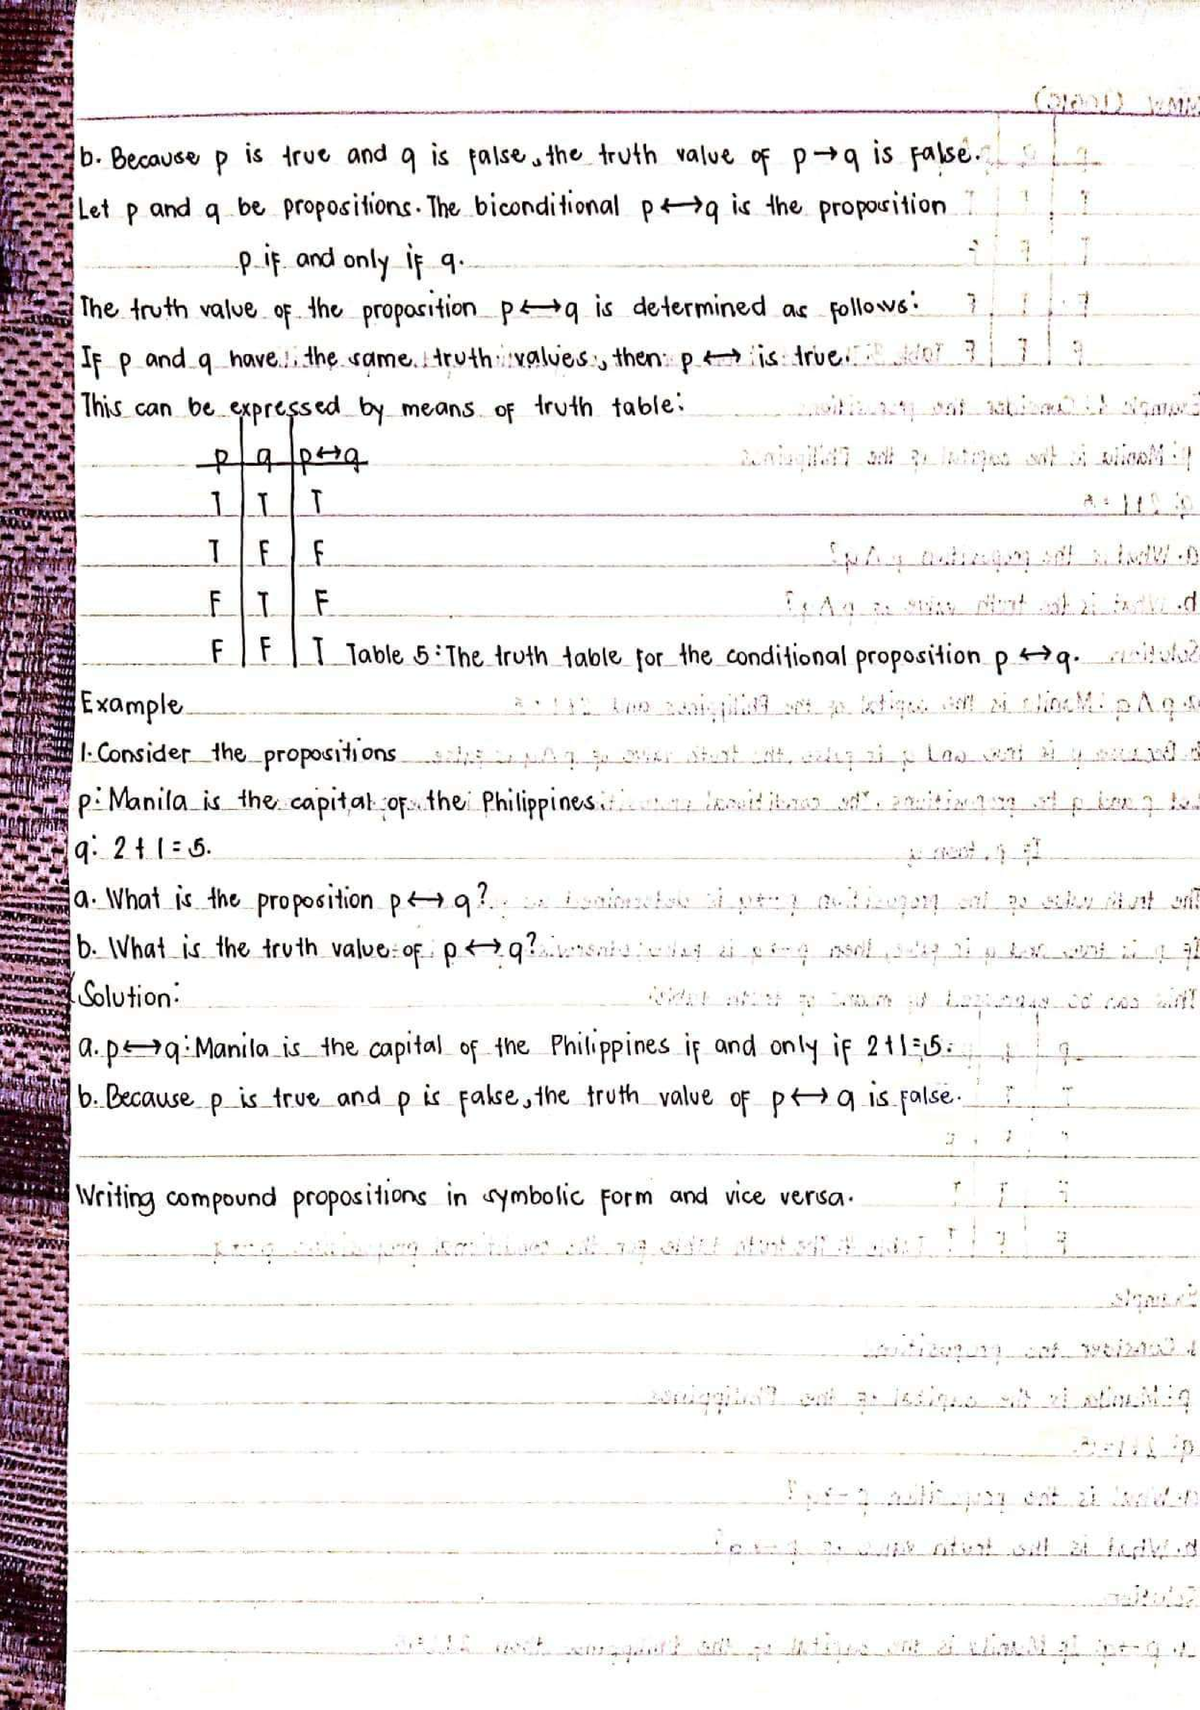 b. Because p is true and q is false, the truth value of p→q is false.
Let p and q be propositions. The biconditional p↔q is the proposition
p if and only if q.
The truth value of the proposition p↔q is determined as follows:
If p and q have the same truth values, then p ↔ is true.
This can be expressed by means of truth table:
p q p↔q
T T T
T F F
F T F
F F T Table 5: The truth table for the conditional proposition p ↔q.
Example
1. Consider the propositions
p: Manila is the capital of the Philippines.
q: 2+1=5.
a. What is the proposition p↔q?
b. What is the truth value of p↔q?
Solution:
a. p↔q: Manila is the capital of the Philippines if and only if 2+1=5.
b. Because p is true and p is false, the truth value of p↔q is false.
Writing compound propositions in symbolic form and vice versa.